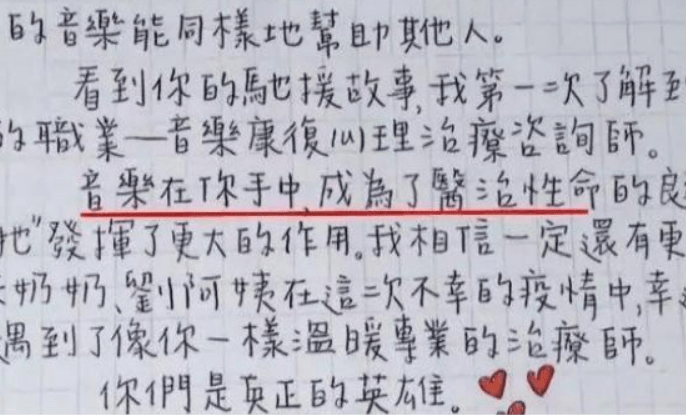 的音樂能同樣地幫助其他人。
看到你的馳援故事,我第一二次了解到
的職業—音樂康復心理治療咨詢師。
音樂在你手中,成為了醫治性命的良
地"發揮了更大的作用。我相信一定還有更
奶奶、劉阿姨在這二次不幸的疫情中,幸
遇到了像你一樣溫暖專業的治療師。
你們是真正的英雄。